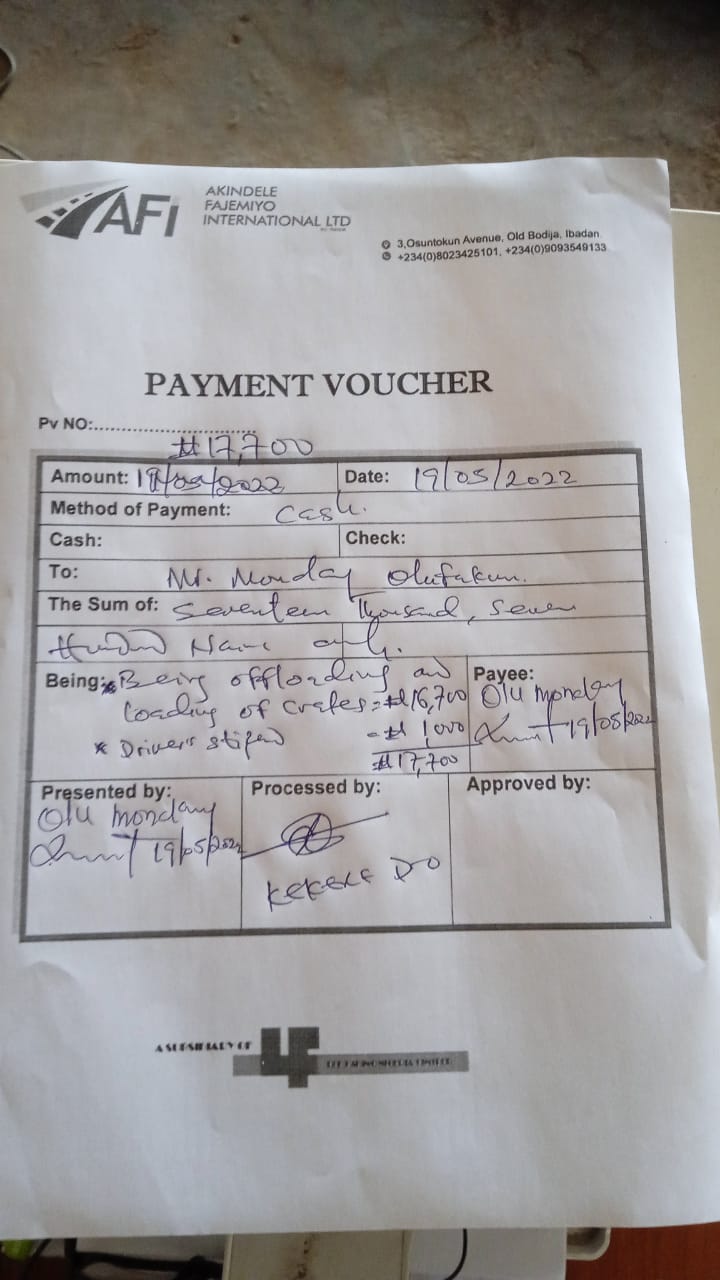 AFI
AKINDELE
FAJEMIYO
INTERNATIONAL LTD
3,Osuntokun Avenue, Old Bodija, Ibadan
+234(0)8023425101, +234(0)9093549133
PAYMENT VOUCHER
Pv NO:...............................
₦17,700
Amount: 19/05/2022 Date: 19/05/2022
Method of Payment: Cash.
Cash: Check:
To: Mr. Monday Olufakun.
The Sum of: Seventeen Thousand, Seven
Hundred Naira only.
Being: * Being offloading and
loading of crates = ₦16,700
* Driver's stifend = ₦ 1,000
₦17,700
Payee:
Olu monday
19/05/2022
Presented by:
Olu monday
19/05/2022
Processed by:
KEKERE DO
Approved by:
A SUBSIDIARY OF
LF